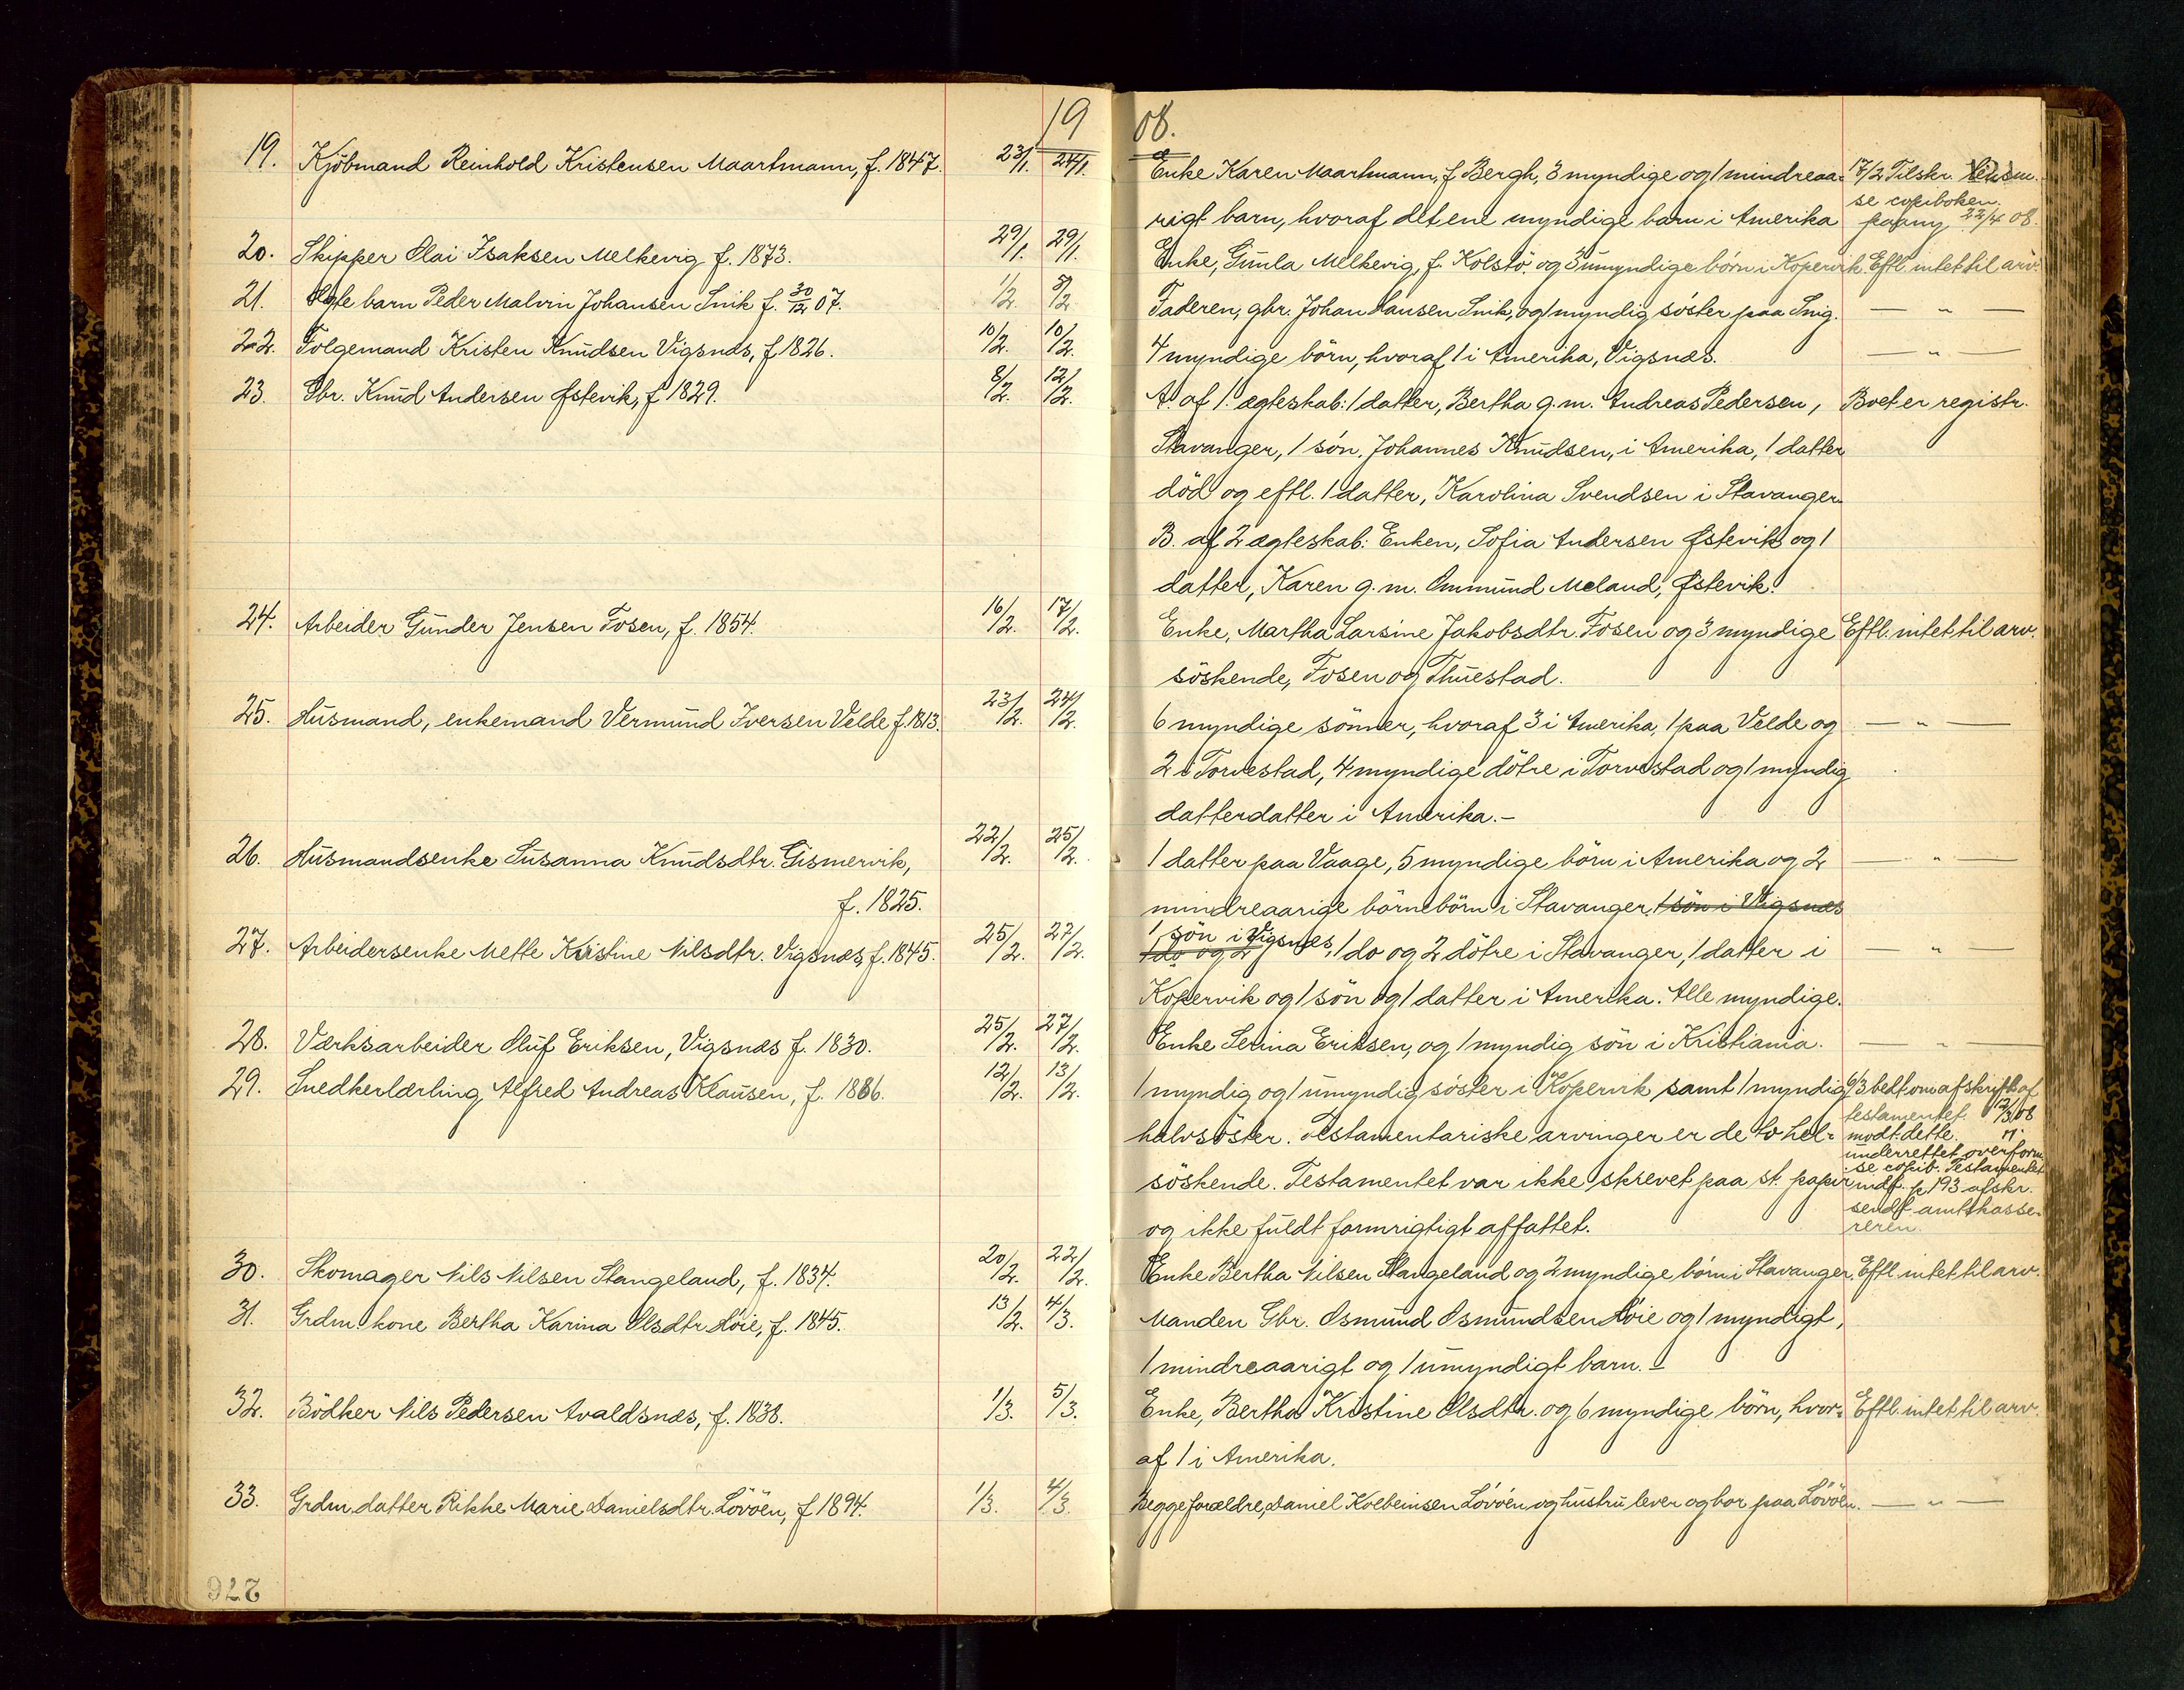 1908.
19. Kjöbmand Reinhold Kristensen Maartmann, f. 1847. 23/1. 24/1. Enke Karen Maartmann, f. Bergh, 3 myndige og 1 mindreaa- 17/2 Tilskr.
se copiboken.
rigt barn, hvoraf det ene myndige barn i Amerika paany 22/4 08.
20. Skipper Olai Isaksen Melkevig f. 1873. 29/1. 29/1. Enke, Gunla Melkevig, f. Kolstö og 3 umyndige börn i Kopervik. Eftl. intet til arv.
21. barn Peder Malvin Johansen Snik f. 30/12 07. 1/2. 8/2 Faderen, gbr. Johan Hansen Snik, og 1 myndig söster paa Snig. — " —
22. Folgemand Kristen Knudsen Vigsnæs, f 1826. 10/2. 10/2. 4 myndige börn, hvoraf 1 i Amerika, Vigsnæs. — " —
23. Gbr. Knud Andersen Østevik, f 1829. 8/2. 12/2. A. af 1. ægteskab: 1 datter, Bertha g. m. Andreas Pedersen, Boet er registr.
Stavanger, 1 sön, Johannes Knudsen, i Amerika, 1 datter
död og eftl. 1 datter, Karolina Svendsen i Stavanger.
B. af 2 ægteskab: Enken, Sofia Andersen Østevik og 1
datter, Karen g. m. Ommund Meland, Østevik.
24. Arbeider Gunder Jensen Fosen, f. 1854. 16/2. 17/2. Enke, Martha Larsine Jakobsdtr. Fosen og 3 myndige Eftl. intet til arv.
söskende, Fosen og Thuestad.
25. Husmand, enkemand Vermund Iversen Velde f. 1813. 23/2. 24/2. 6 myndige sönner, hvoraf 3 i Amerika, 1 paa Velde og — " —
2 i Torvestad, 4 myndige dötre i Torvestad og 1 myndig
datterdatter i Amerika.-
26. Husmandsenke Susanna Knudsdtr. Gismervik, 22/2. 25/2. 1 datter paa Vaage, 5 myndige börn i Amerika og 2 — " —
f. 1825. mindreaarige börnebörn i Stavanger, 1 sön i Vigsnæs
1 sön i Vigsnes,
27. Arbeidersenke Mette Kristine Nilsdtr. Vigsnæs, f. 1845. 25/2. 27/2. 1 do og 2 1 do og 2 dötre i Stavanger, 1 datter i "
Kopervik og 1 sön og 1 datter i Amerika. Alle myndige.
28. Værksarbeider Oluf Eriksen, Vigsnæs f. 1830. 25/2. 27/2. Enke Serina Eriksen, og 1 myndig sön i Kristiania. — " —
29. Snedkerlærling Alfred Andreas Klausen, f. 1886. 12/2. 13/2. 1 myndig og 1 umyndig söster i Kopervik samt 1 myndig 6/3 bedt om afskrift af
testamentet. 12/3 08
halvsöster. Testamentariske arvinger er de to hel- modt. dette.
underrettet overform.
se copib. Testamentet
söskende. Testamentet var ikke skrevet paa st. papir indf. p 193 afskr.
sendt amtskasse-
og ikke fuldt formrigtigt affattet. reren.
30. Skomager Nils Nilsen Stangeland, f. 1834. 20/2. 22/2. Enke Bertha Nilsen Stangeland og 2 myndige börn i Stavanger. Eftl. intet til arv.
31. Grdm. kone Bertha Karina Olsdtr Höie, f. 1845. 13/2. 4/3. Manden Gbr. Osmund Osmundsen Höie og 1 myndigt,
1 mindreaarigt og 1 umyndigt barn. -
32. Bödker Nils Pedersen Avaldsnæs, f. 1838. 1/3. 5/3. Enke, Bertha Kristine Olsdtr. og 6 myndige börn, hvor- Eftl. intet til arv.
af 1 i Amerika.
33. Grdm. datter Rikke Marie Danielsdtr. Lövöen, f 1894. 1/3. 4/3. Begge forældre, Daniel Kolbeinsen Lövöen og hustru lever og bor paa Lövöen. — " —